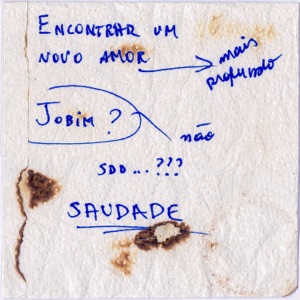 ENCONTRAR UM
NOVO AMOR
mais
profundo
JOBIM ?
não
SDD...???
SAUDADE